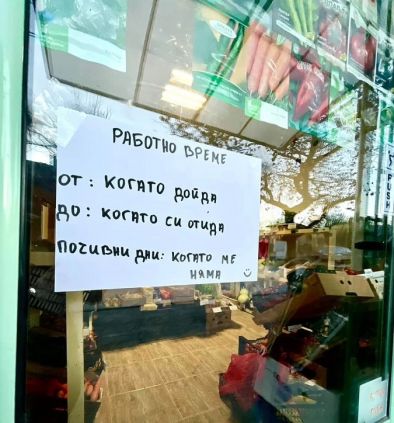 РАБОТНО ВРЕМЕ
ОТ: КОГАТО ДОЙДА
ДО: КОГАТО СИ ОТИДА
ПОЧИВНИ ДНИ: КОГАТО МЕ
НЯМА
PUSH